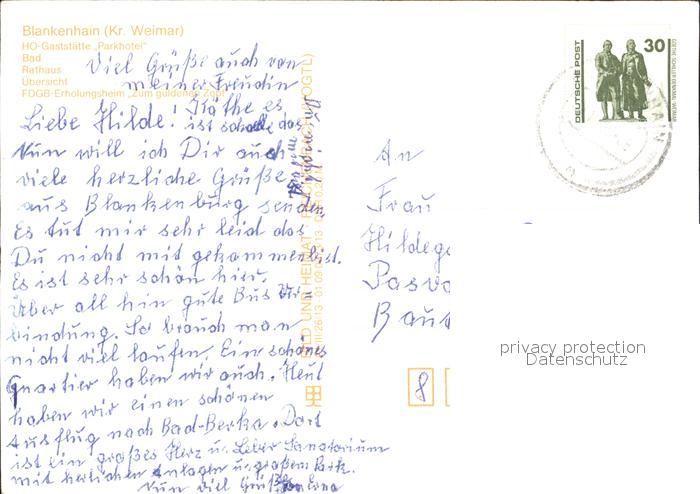 Blankenhain (Kr. Weimar)
HO-Gaststätte „Parkhotel“
Bad
Rathaus
Übersicht
FDGB-Erholungsheim „Zum güldenen Zopf“
Viel Grüße auch von
meiner Freundin
Käthe es
ist schade das
Liebe Hilde!
Nun will ich Dir auch
viele herzliche Grüße
aus Blankenburg senden.
Es tut mir sehr leid das
Du nicht mit gekommen bist.
Es ist sehr schön hier.
Über all hin gute Bus Ver
bindung. So brauch man
nicht viel laufen. Ein schönes
Quartier haben wir auch. Heut
haben wir einen schönen
Ausflug nach Bad-Berka. Dort
ist ein großes Herz u. Leber Sanatorium
mit herlichen Anlagen u. großem Park.
Nun viel Grüße
BILD UND HEIMAT
An
Frau
Hildeg
Bau
8
DEUTSCHE POST
30
GOETHE-SCHILLER-DENKMAL WEIMAR
privacy protection
Datenschutz